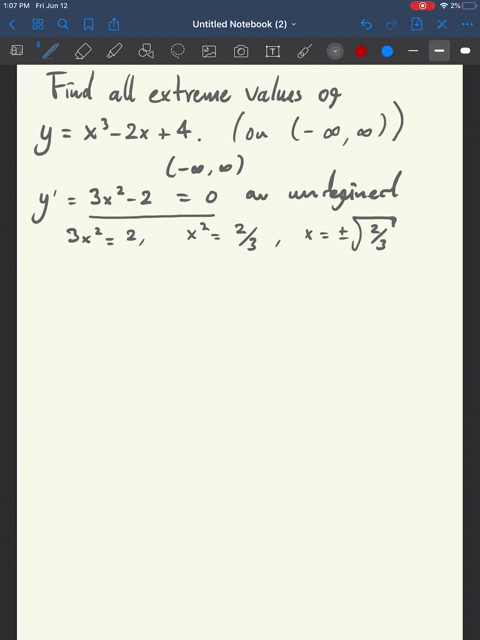 1:07 PM Fri Jun 12
2%
Untitled Notebook (2)
Find all extreme values of
y = x³ - 2x + 4. (on (-∞, ∞))
(-∞, ∞)
y' = 3x² - 2 = 0 or undefined
3x² = 2, x² = 2/3, x = ±√2/3